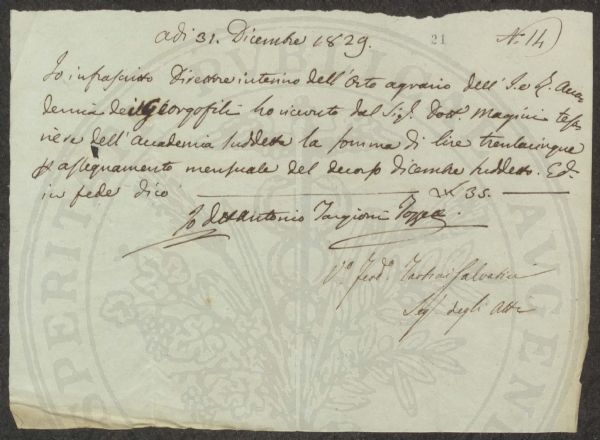 adi 31. Dicembre 1829. 21 N.º 14
Io infrascritto Direttore interino dell'Orto agrario dell'I. e R. Acca
demia dei Georgofili ho ricevuto dal Sig.ʳ Dott. Magini teso
riere dell'Accademia suddetta la somma di lire trentacinque
p assegnamento mensuale del decorso dicembre suddetto. Ed
in fede dico 35.
Io Dott Antonio Targioni Tozzetti.
V.º Ferd.º Tartini Salvatici
Seg.º degli Atti
PUBLICAE
PROSPERITATI
AUGENDAE